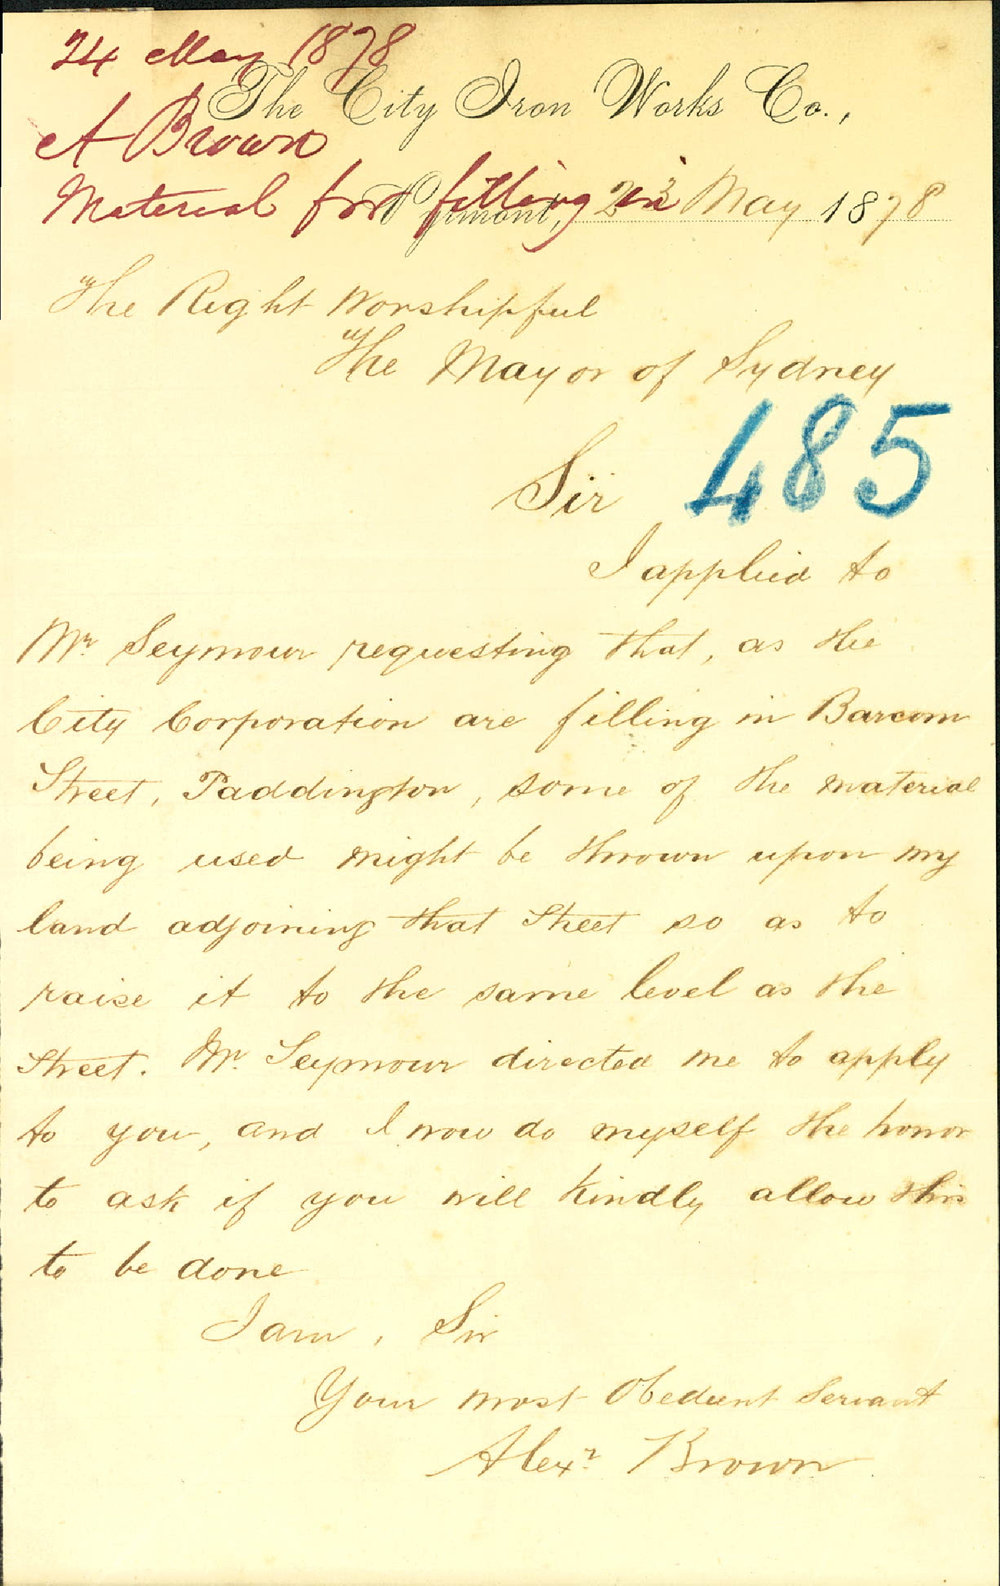 24 May 1878
The City Iron Works Co.,
A Brown
Material for filling in
Pyrmont, 23 May 1878
The Right Worshipful
The Mayor of Sydney
485
Sir
I applied to
Mr Seymour requesting that, as the
City Corporation are filling in Barcom
Street, Paddington, some of the material
being used might be thrown upon my
land adjoining that Street so as to
raise it to the same level as the
Street. Mr. Seymour directed me to apply
to you, and I now do myself the honor
to ask if you will kindly allow this
to be done
I am, Sir
Your most Obedient Servant
Alexr Brown